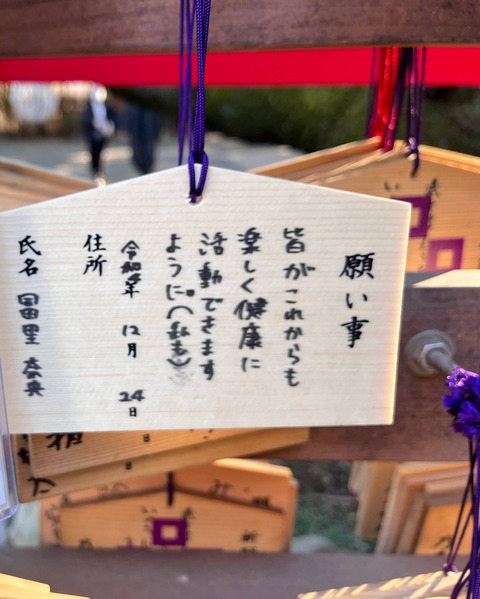 願い事
皆がこれからも
楽しく健康に
活動できます
ように。(私も)
令和4年 12月 24日
住所
氏名 冨里 奈央